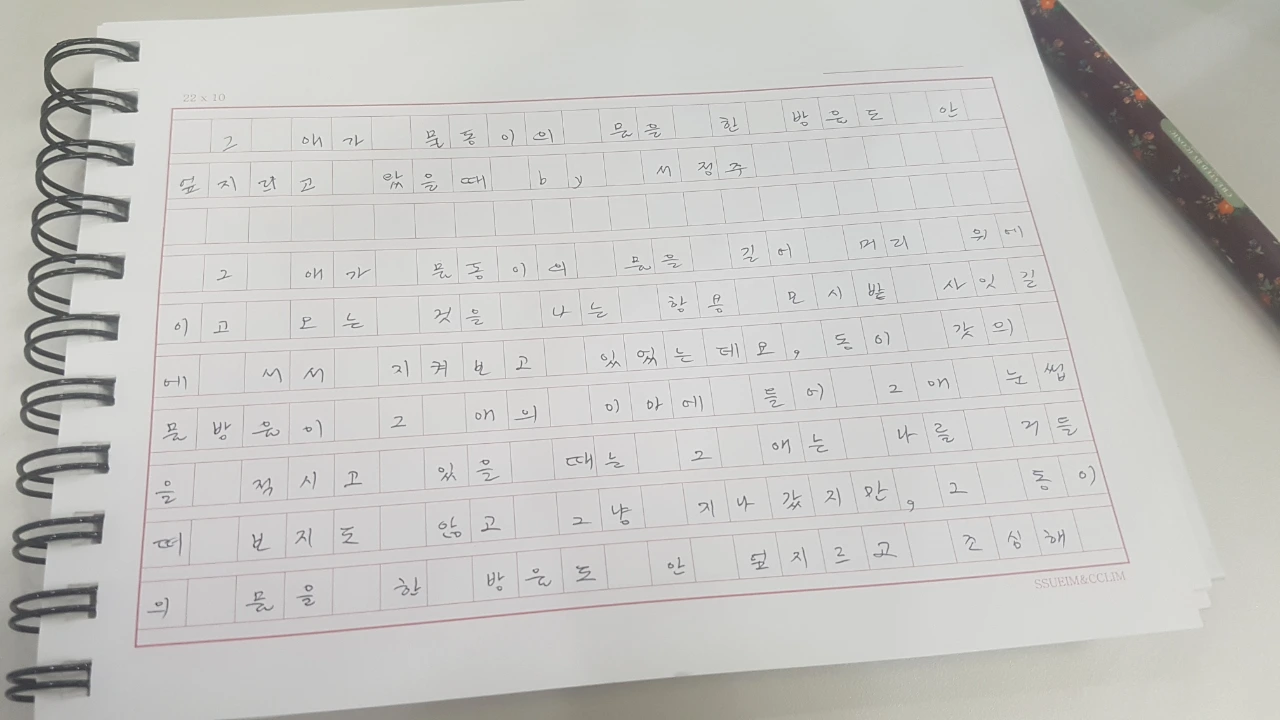 22 x 10
그 애가 물동이의 물을 한 방울도 안
엎지라고 왔을때 by 서정주
그 애가 물동이의 물을 길어 머리 위에
이고 오는 것을 나는 항용 모시밭 사잇길
에 서서 지켜보고 있었는데요, 동이 갓의
물방울이 그 애의 이마에 들어 그 애 눈썹
을 적시고 있을 때는 그 애는 나를 거들
떠 보지도 않고 그냥 지나갔지만, 그 동이
의 물을 한 방울도 안 엎지르고 조심해
SSUEIM&CCLIM